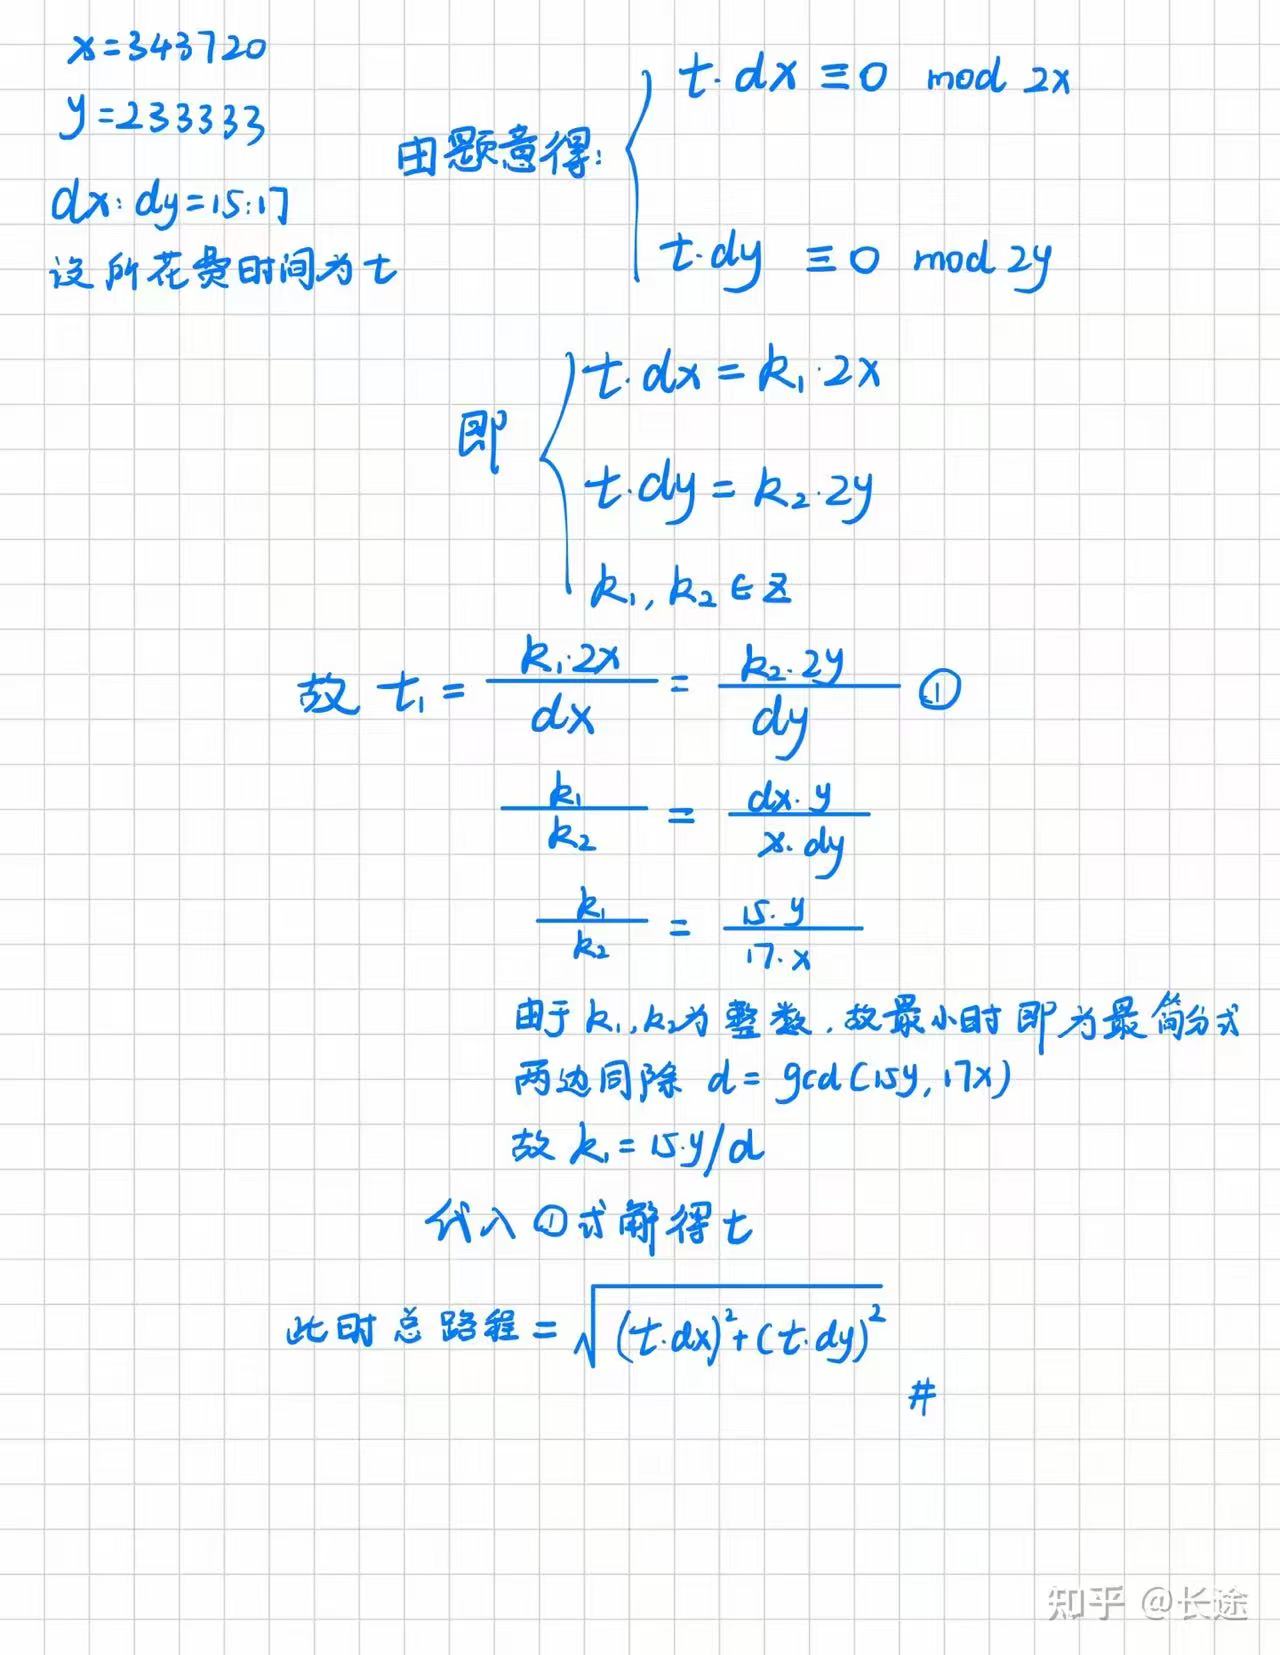 x=343720
y=233333
dx:dy=15:17
设所花费时间为t
由题意得:
t·dx≡0 mod 2x
t·dy≡0 mod 2y
即
t·dx=k₁·2x
t·dy=k₂·2y
k₁,k₂∈Z
故 t₁ = k₁·2x / dx = k₂·2y / dy ①
k₁ / k₂ = dx·y / x·dy
k₁ / k₂ = 15·y / 17·x
由于k₁,k₂为整数,故最小时即为最简分式
两边同除 d=gcd(15y,17x)
故 k₁=15·y/d
代入①式解得t
此时总路程=√(t·dx)²+(t·dy)²
#
知乎 @长途